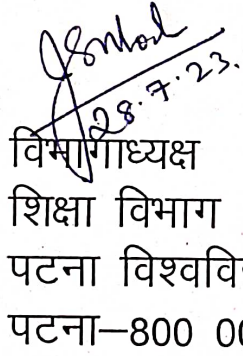 28.7.23.
विभागाध्यक्ष
शिक्षा विभाग
पटना विश्ववि
पटना–800 00